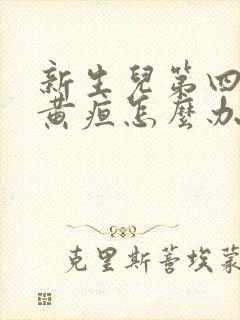 新生兒第四
黃疸怎麼办
克里斯蒂埃蒙